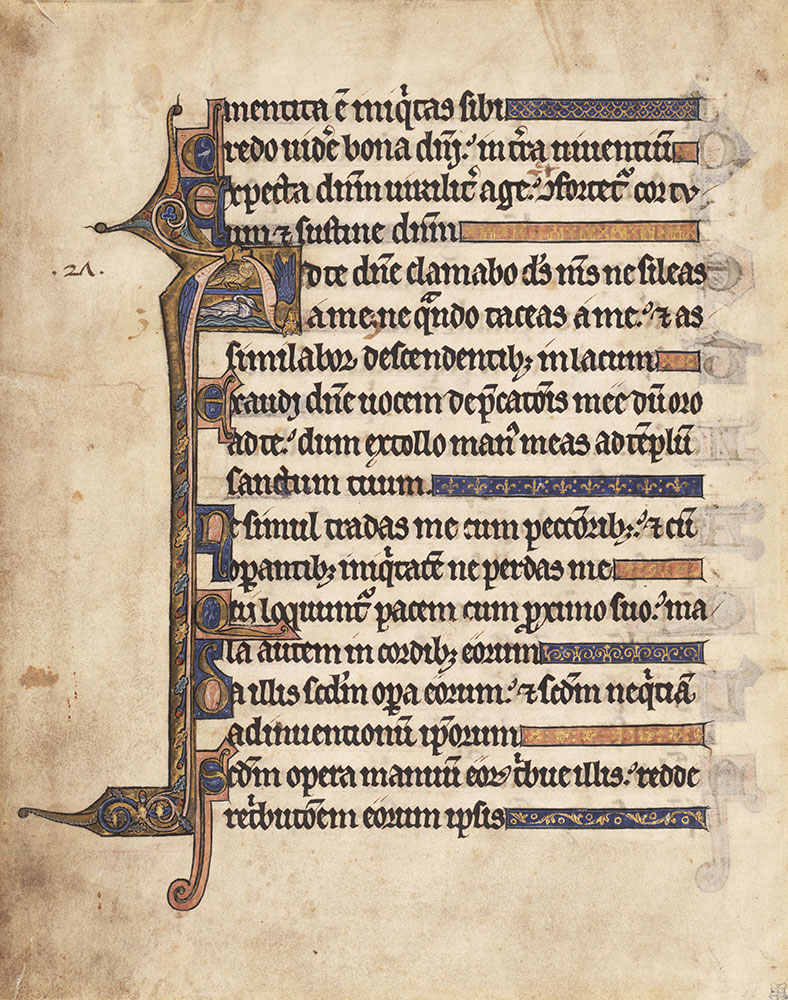 mentita ē iniq̃tas sibi
Credo uidẽ bona dñi; in t̃ra uiuentiũ
Expecta dñm uirilit̃ age; ꝯfortet᷑ cor tu
um ⁊ sustine dñm
Ad te dñe clamabo ds̃ ms̃ ne sileas
a me; ne qñdo taceas a me; ⁊ as
similabor descendentibꝫ in lacum
Exaudi dñe uocem dep̃catõis mee dũ oro
ad te; dum extollo manꝰ meas ad tẽplũ
sanctum tuum.
Ne simul tradas me cum peccõribꝫ; ⁊ cũ
oꝑantibꝫ iniq̃tatẽ ne perdas me
Qui loquunt᷑ pacem cum ꝓximo suo; ma
la autem in cordibꝫ eorum
Da illis scdm̃ oꝑa eorum; ⁊ scdm̃ neq̃tiã
adinuentionũ ip̃orum
Scdm̃ opera manuũ eoꝝ t̃bue illis; redde
ret̃butõem eorum ipsis